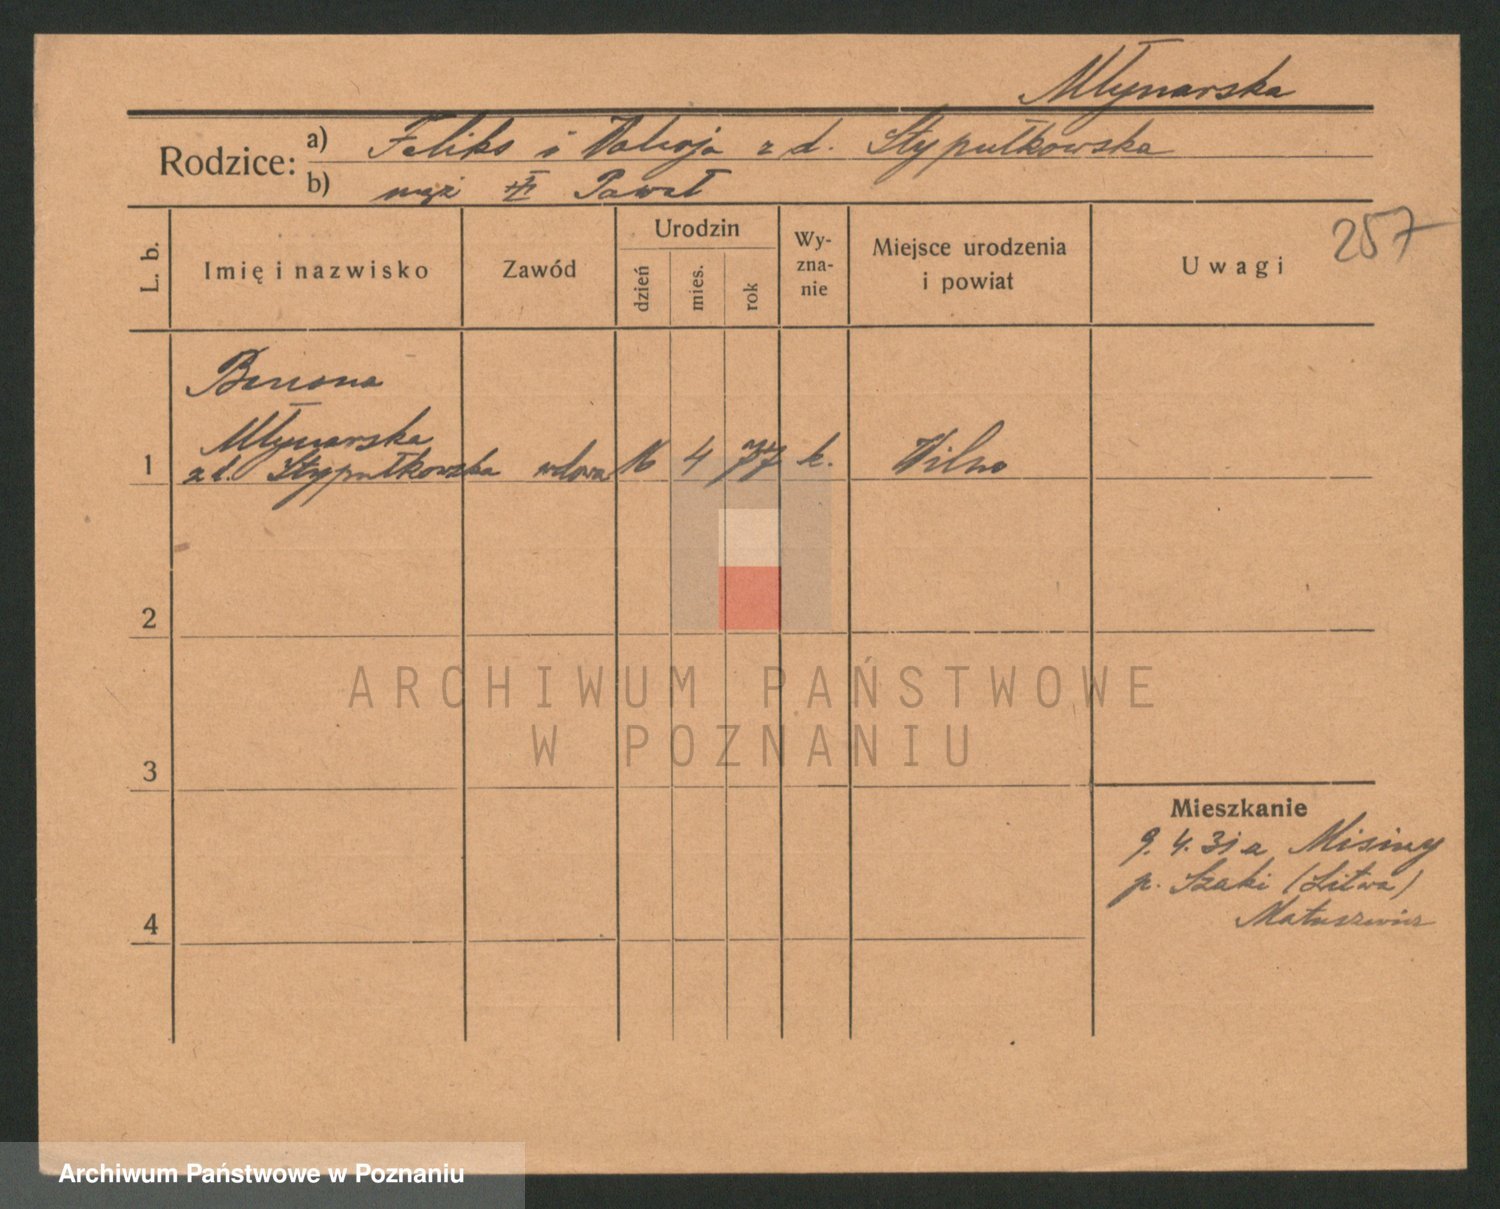 Młynarska
Rodzice: a) Feliks i Waleria z d. Stypułkowska
b) mąż Paweł
L. b. Imię i nazwisko Zawód Urodzin dzień mies. rok Wyznanie Miejsce urodzenia i powiat Uwagi 257
Benona
Młynarska
1 z d. Stypułkowska wdowa 16 4 77 k. Wilno
2
ARCHIWUM PAŃSTWOWE
W POZNANIU
3
Mieszkanie
9. 4. 31 a Misiny
p. Szaki (Litwa)
Matuszewicz
4
Archiwum Państwowe w Poznaniu